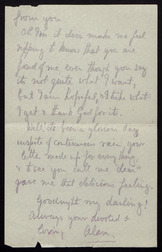 from you
It does make me feel
ripping to know that you are
fond of me even though you say
it's not quite what I want,
but I am hopeful, & I take what
I get & thank God for it.
Well, it's been a glorious day
in spite of continuous rain, your
letter made up for everything,
& to see you call me "dear"
gave me that delicious feeling.
Goodnight my darling!
Always your devoted &
loving Alan.